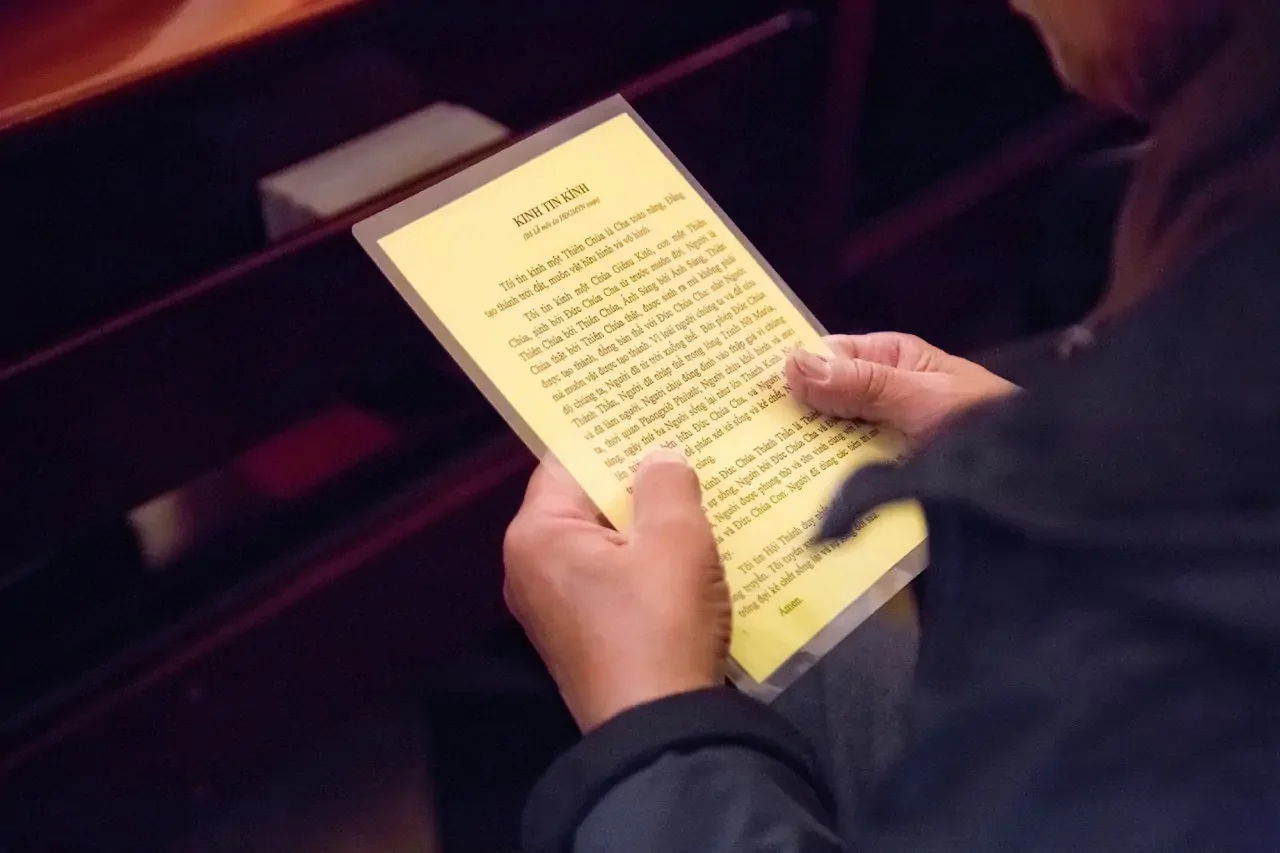 KINH TIN KÍNH
(Bộ Lễ mới do HĐGMVN soạn)
Tôi tin kính một Thiên Chúa là Cha toàn năng, Đấng
tạo thành trời đất, muôn vật hữu hình và vô hình.
Tôi tin kính một Chúa Giêsu Kitô, con một Thiên
Chúa, sinh bởi Đức Chúa Cha từ trước muôn đời. Người là
Thiên Chúa bởi Thiên Chúa, Ánh Sáng bởi Ánh Sáng, Thiên
Chúa thật bởi Thiên Chúa thật, được sinh ra mà không phải
được tạo thành, đồng bản thể với Đức Chúa Cha: nhờ Người
mà muôn vật được tạo thành. Vì loài người chúng ta và để cứu
độ chúng ta, Người đã từ trời xuống thế. Bởi phép Đức Chúa
Thánh Thần, Người đã nhập thể trong lòng Trinh Nữ Maria,
và đã làm người. Người chịu đóng đinh vào thập giá vì chúng
ta, thời quan Phongxiô Philatô; Người chịu khổ hình và mai
táng, ngày thứ ba Người sống lại như lời Thánh Kinh.
lên hữu Đức Chúa Cha, và Người
để phán xét kẻ sống và kẻ chết,
cùng.
kính Đức Chúa Thánh Thần là Thiên
sự sống, Người bởi Đức Chúa Cha và
Người được phụng thờ và tôn vinh cùng với
và Đức Chúa Con: Người đã dùng các tiên tri mà
dạy.
Tôi tin Hội Thánh duy
tông truyền. Tôi tuyên
trông đợi kẻ chết sống lại và sự sống đời sau.
Amen.